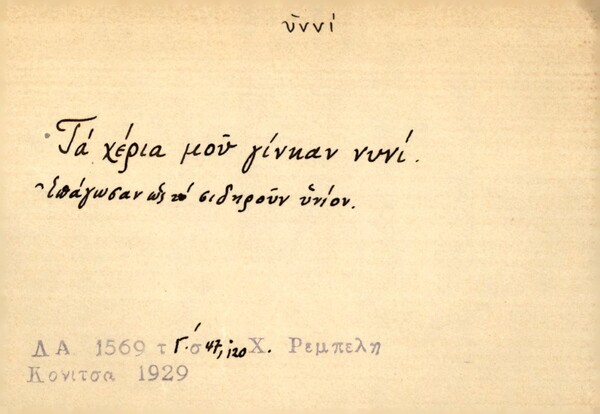 ὑννί
Τά χέρια μοῦ γίνκαν νυνί.
Ἐπάγωσαν ὡς τό σιδηροῦν ὑνίον.
Δ Α 1569 τ Γ.΄ σ 47, 120 Χ. Ρεμπελη
Κονιτσα 1929